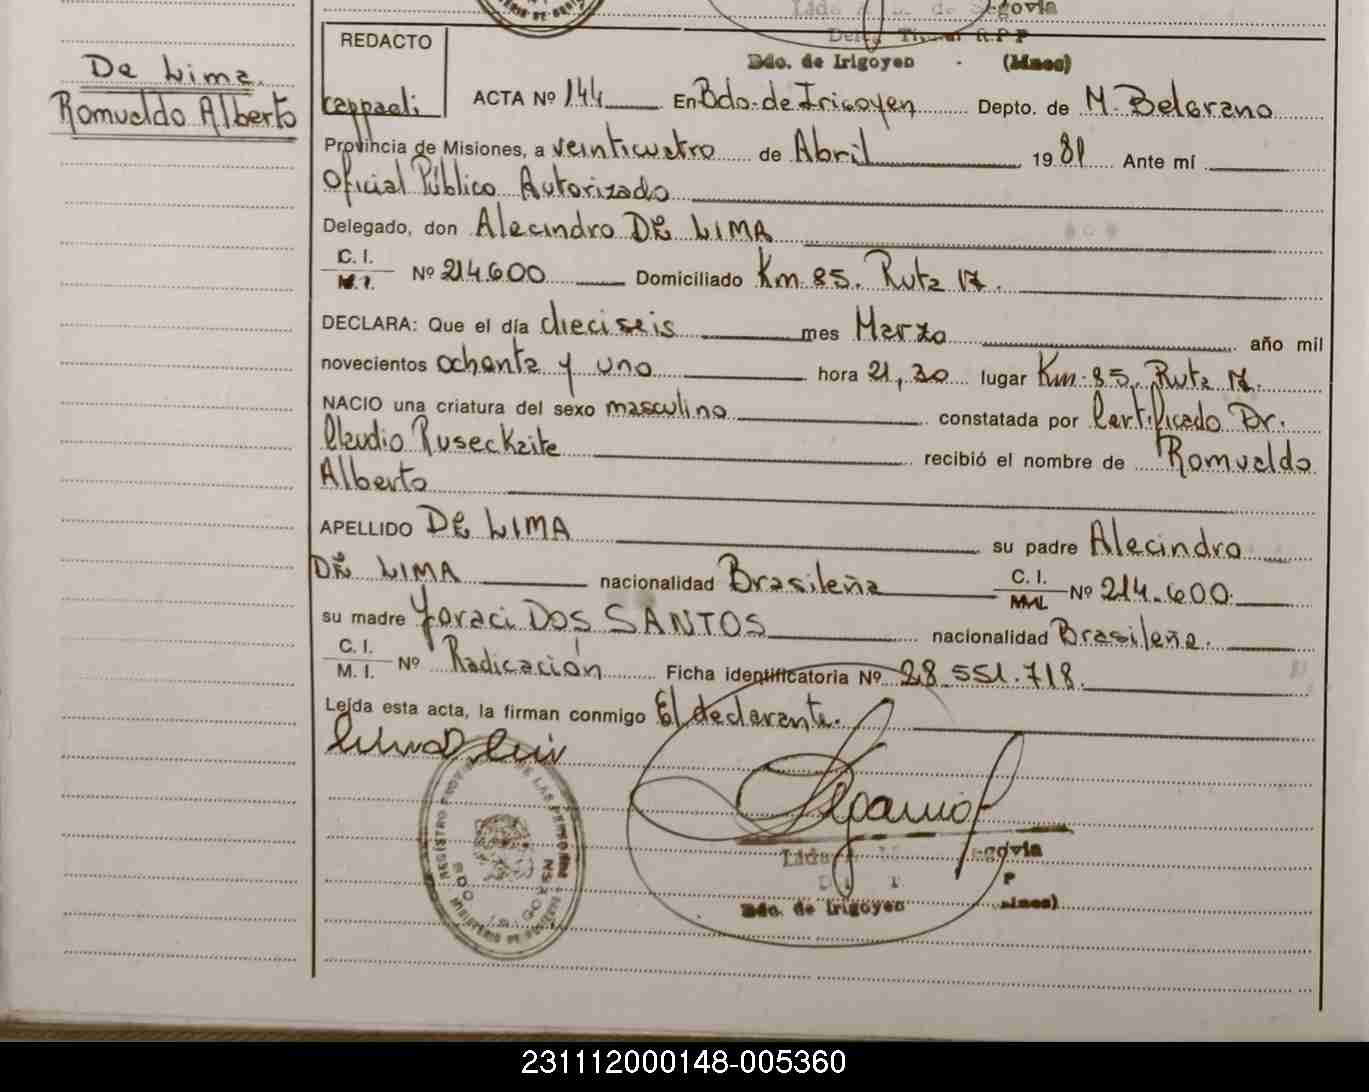 De Lima.
Romualdo Alberto
Bdo. de Irigoyen - (Mnes)
REDACTO
cappaeli
ACTA Nº 144 En Bdo. de Irigoyen Depto. de M. Belgrano
Provincia de Misiones, a veinticuatro de Abril 1981 Ante mí
Oficial Público Autorizado
Delegado, don Alecindro DE LIMA
C. I. / M. I. Nº 214.600 Domiciliado Km. 85. Ruta 17.
DECLARA: Que el día dieciseis mes Marzo año mil
novecientos ochenta y uno hora 21,30 lugar Km. 85. Ruta 17.
NACIO una criatura del sexo masculino constatada por Certificado Dr.
Claudio Ruseckaite recibió el nombre de Romualdo
Alberto
APELLIDO DE LIMA su padre Alecindro
DE LIMA nacionalidad Brasileña C. I. / M. I. Nº 214.600.
su madre Joraci DOS SANTOS nacionalidad Brasileña.
C. I. / M. I. Nº Radicación Ficha identificatoria Nº 28.551.718.
Leída esta acta, la firman conmigo El declarante.
REGISTRO PROVINCIAL DE LAS PERSONAS
Bdo. de Irigoyen Mnes)
231112000148-005360